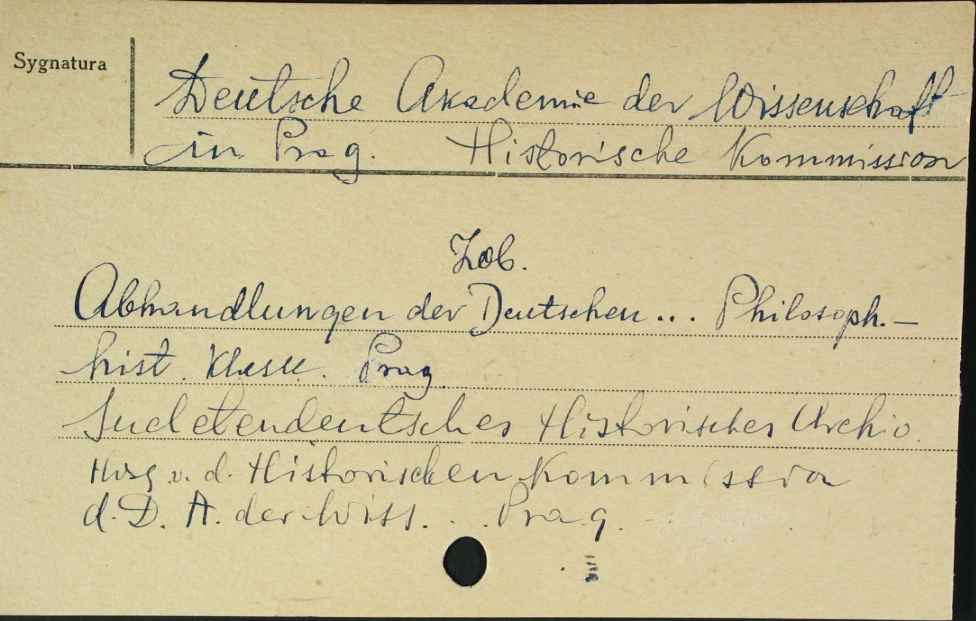 Sygnatura
Deutsche Akademie der Wissenschaft
in Prag. Historische Kommission
Zob.
Abhandlungen der Deutschen... Philosoph.-
hist. Klasse. Prag.
Sudetendeutsches Historisches Archiv.
Hrsg v. d. Historischen Kommission
d. D. A. der Wiss. . . Prag.